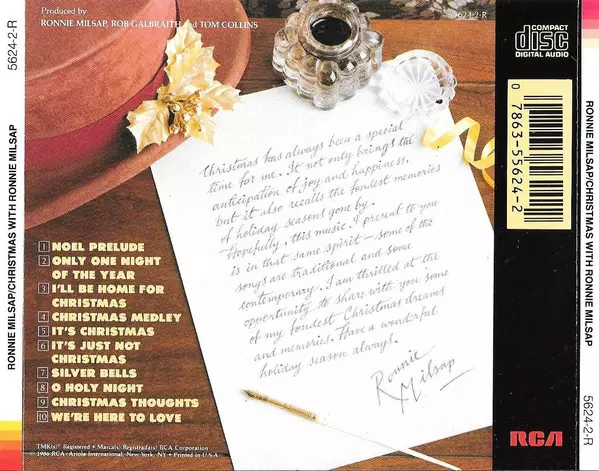 Produced by
RONNIE MILSAP, ROB GALBRAITH and TOM COLLINS
5624-2-R
COMPACT
disc
DIGITAL AUDIO
5624-2-R
RONNIE MILSAP/CHRISTMAS WITH RONNIE MILSAP
0 7863-55624-2
Christmas has always been a special
time for me. It not only brings the
anticipation of joy and happiness,
but it also recalls the fondest memories
of holiday seasons gone by.
Hopefully, this music I present to you
is in that same spirit - some of the
songs are traditional and some
contemporary. I am thrilled at the
opportunity to share with you some
of my fondest Christmas dreams
and memories. Have a wonderful
holiday season always!
Ronnie
Milsap
1 NOEL PRELUDE
2 ONLY ONE NIGHT
OF THE YEAR
3 I'LL BE HOME FOR
CHRISTMAS
4 CHRISTMAS MEDLEY
5 IT'S CHRISTMAS
6 IT'S JUST NOT
CHRISTMAS
7 SILVER BELLS
8 O HOLY NIGHT
9 CHRISTMAS THOUGHTS
10 WE'RE HERE TO LOVE
TMK(s)® Registered • Marca(s) Registrada(s) RCA Corporation
1986 RCA • Ariola International, New York, NY • Printed in U.S.A
RCA
RONNIE MILSAP/CHRISTMAS WITH RONNIE MILSAP
5624-2-R